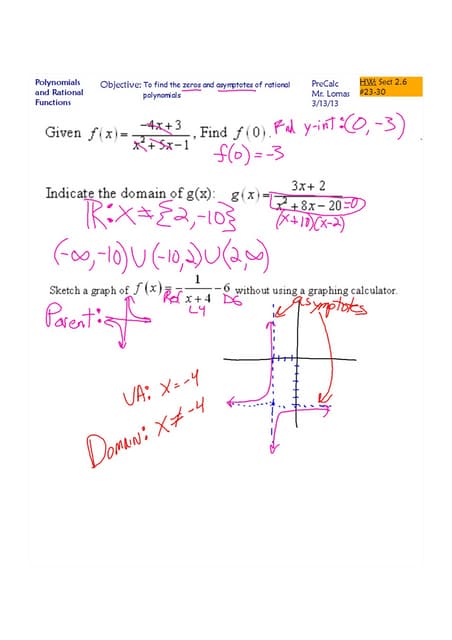 Polynomials and Rational Functions
Objective: To find the zeros and asymptotes of rational polynomials
PreCalc
Mr. Lomas
3/13/13
HW: Sect 2.6
#23-30
Given f(x) = (-4x + 3)/(x² + 5x - 1), Find f(0). Find y-int: (0, -3)
f(0) = -3
Indicate the domain of g(x): g(x) = (3x + 2)/(x² + 8x - 20) = 0
(x+10)(x-2)
ℝ: x ≠ {2, -10}
(-∞, -10) ∪ (-10, 2) ∪ (2, ∞)
Sketch a graph of f(x) = - 1/(x + 4) - 6 without using a graphing calculator.
Ref L4 D6
asymptotes
Parent:
VA: x = -4
Domain: x ≠ -4